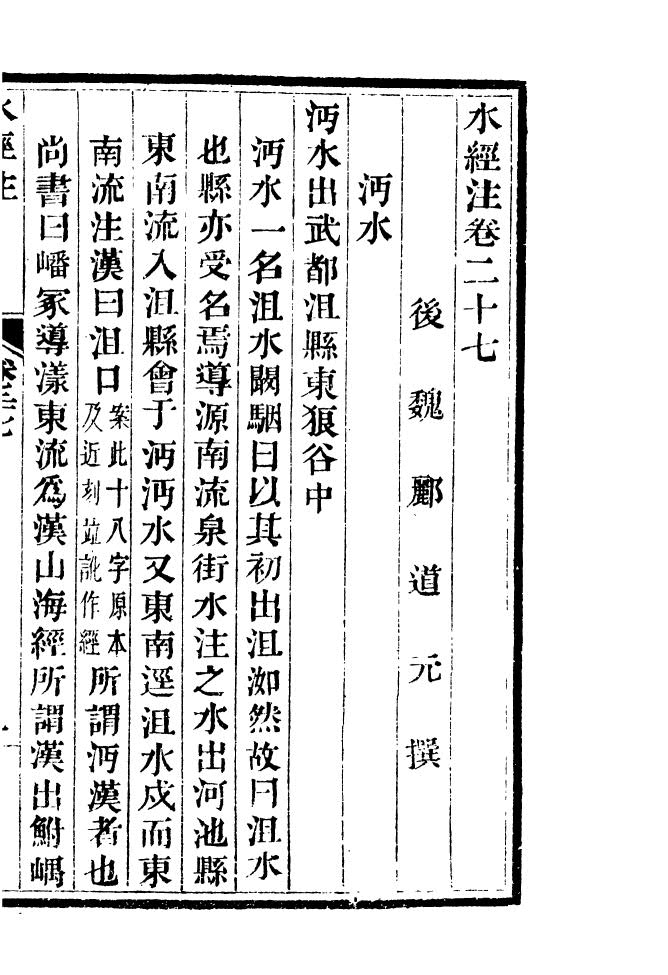 水經注卷二十七
後魏酈道元撰
沔水
沔水出武都沮縣東狼谷中
沔水一名沮水闞駰曰以其初出沮洳然故曰沮水
也縣亦受名焉導源南流泉街水注之水出河池縣
東南流入沮縣會于沔沔水又東南逕沮水戍而東
南流注漢曰沮口案此十八字原本
及近刻竝訛作經所謂沔漢者也
尚書曰嶓冢導漾東流為漢山海經所謂漢出鮒嵎
水經注